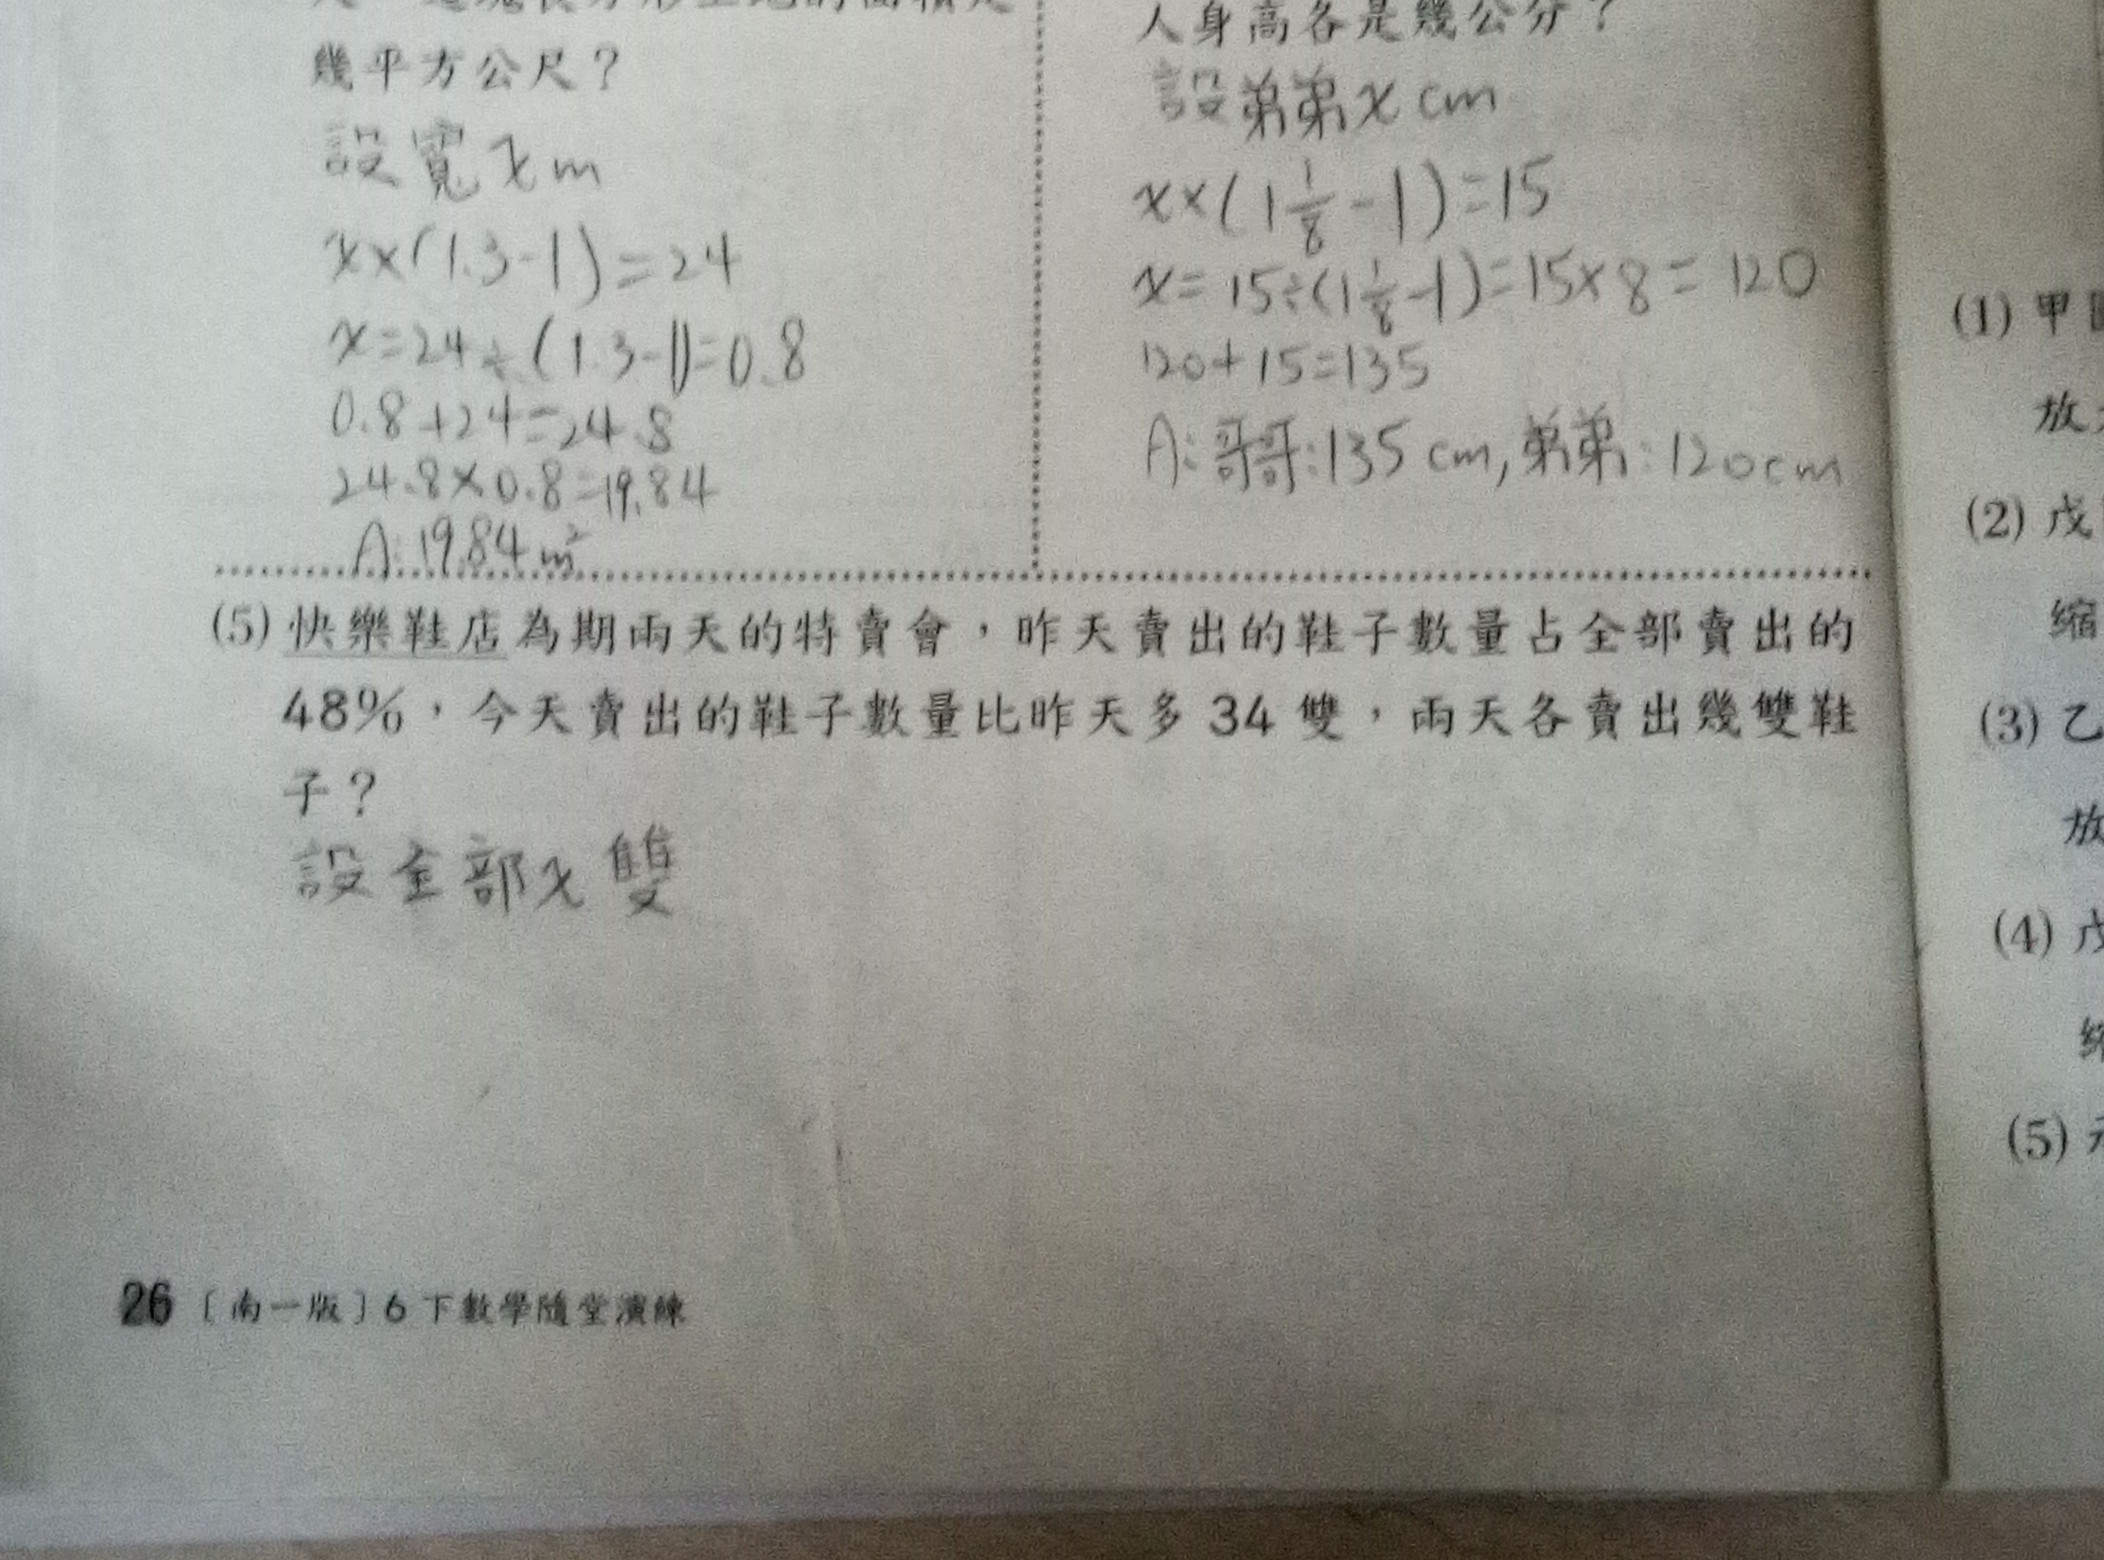 幾平方公尺？
設寬xm
x×(1.3-1)=24
x=24÷(1.3-1)=0.8
0.8+24=24.8
24.8×0.8=19.84
A:19.84m²
人身高各是幾公分？
設弟弟xcm
x×(1⅛-1)=15
x=15÷(1⅛-1)=15×8=120
120+15=135
A:哥哥:135cm,弟弟:120cm
(5)快樂鞋店為期兩天的特賣會，昨天賣出的鞋子數量占全部賣出的
48%，今天賣出的鞋子數量比昨天多34雙，兩天各賣出幾雙鞋
子？
設全部x雙
26〔南一版〕6下數學隨堂演練
(1)甲
放
(2)戊
縮
(3)乙
放
(4)戊
縮
(5)